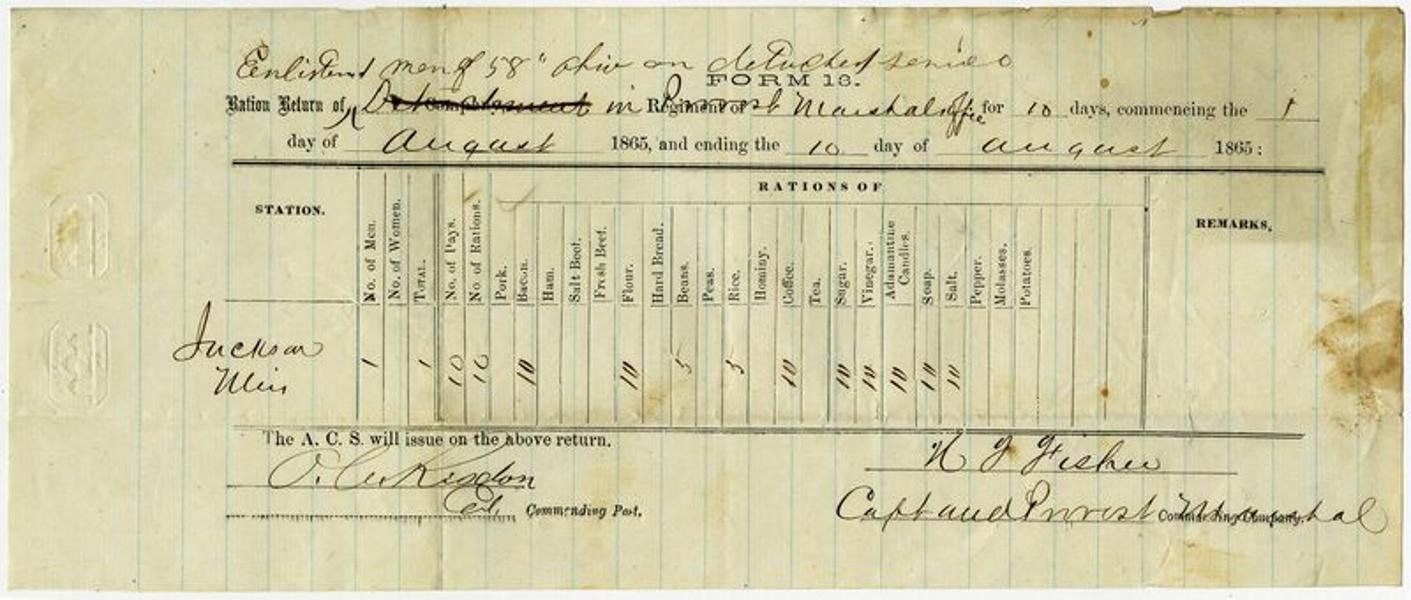 Enlisted men of 58" Ohio on detached service
FORM 13.
Ration Return of Detachment in Regiment of Provost Marshals Office for 10 days, commencing the 1
day of August 1865, and ending the 10 day of August 1865:
RATIONS OF
STATION. No. of Men. No. of Women. TOTAL. No. of Days. No. of Rations. Pork. Bacon. Ham. Salt Beef. Fresh Beef. Flour. Hard Bread. Beans. Peas. Rice. Hominy. Coffee. Tea. Sugar. Vinegar. Adamantine Candles. Soap. Salt. Pepper. Molasses. Potatoes. REMARKS.
Jackson
Miss 1 1 10 10 10 10 5 5 10 10 10 10 10 10
The A. C. S. will issue on the above return.
N J Fisher
Commanding Post.
Capt and Provost Marshal Commanding Company.